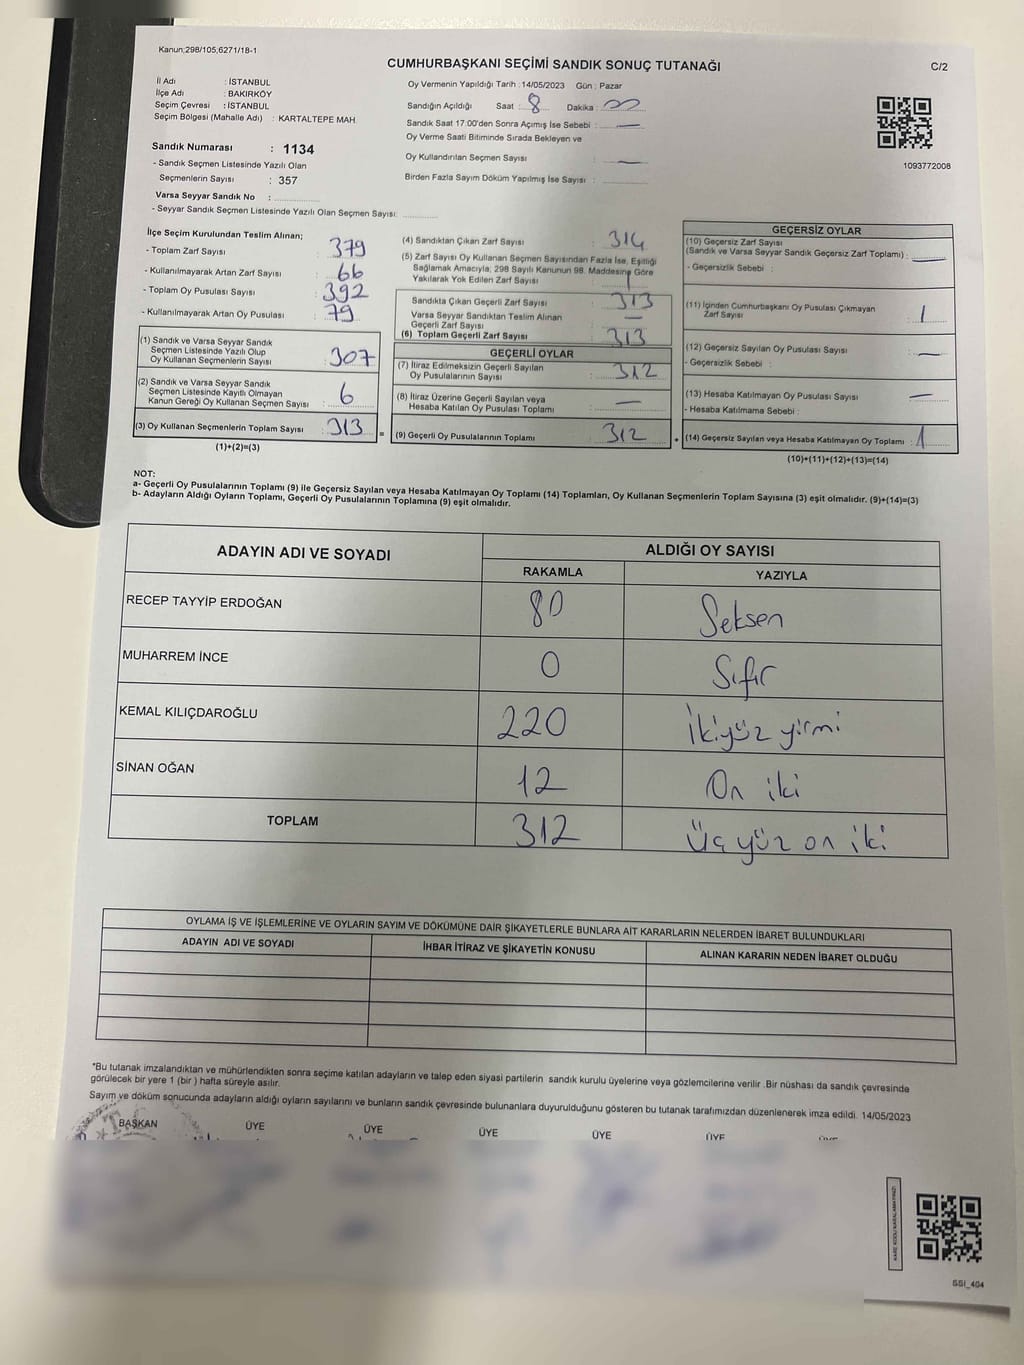 Kanun;298/105,6271/18-1
CUMHURBAŞKANI SEÇİMİ SANDIK SONUÇ TUTANAĞI
C/2
İl Adı : İSTANBUL
İlçe Adı : BAKIRKÖY
Seçim Çevresi : İSTANBUL
Seçim Bölgesi (Mahalle Adı) : KARTALTEPE MAH.
Oy Vermenin Yapıldığı Tarih : 14/05/2023 Gün : Pazar
Sandığın Açıldığı Saat : 8 Dakika : 00
Sandık Saat 17.00'den Sonra Açımış İse Sebebi : —
Oy Verme Saati Bitiminde Sırada Bekleyen ve
Oy Kullandırılan Seçmen Sayısı : —
Birden Fazla Sayım Döküm Yapılmış İse Sayısı :
1093772008
Sandık Numarası : 1134
- Sandık Seçmen Listesinde Yazılı Olan
Seçmenlerin Sayısı : 357
Varsa Seyyar Sandık No :
- Seyyar Sandık Seçmen Listesinde Yazılı Olan Seçmen Sayısı:
İlçe Seçim Kurulundan Teslim Alınan;
- Toplam Zarf Sayısı : 379
- Kullanılmayarak Artan Zarf Sayısı : 66
- Toplam Oy Pusulası Sayısı : 392
- Kullanılmayarak Artan Oy Pusulası : 79
(1) Sandık ve Varsa Seyyar Sandık
Seçmen Listesinde Yazılı Olup
Oy Kullanan Seçmenlerin Sayısı : 307
(2) Sandık ve Varsa Seyyar Sandık
Seçmen Listesinde Kayıtlı Olmayan
Kanun Gereği Oy Kullanan Seçmen Sayısı : 6
(3) Oy Kullanan Seçmenlerin Toplam Sayısı : 313
(1)+(2)=(3)
(4) Sandıktan Çıkan Zarf Sayısı : 314
(5) Zarf Sayısı Oy Kullanan Seçmen Sayısından Fazla İse, Eşitliği
Sağlamak Amacıyla; 298 Sayılı Kanunun 98. Maddesine Göre
Yakılarak Yok Edilen Zarf Sayısı : 1
Sandıkta Çıkan Geçerli Zarf Sayısı : 313
Varsa Seyyar Sandıktan Teslim Alınan
Geçerli Zarf Sayısı : —
(6) Toplam Geçerli Zarf Sayısı : 313
GEÇERLİ OYLAR
(7) İtiraz Edilmeksizin Geçerli Sayılan
Oy Pusulalarının Sayısı : 312
(8) İtiraz Üzerine Geçerli Sayılan veya
Hesaba Katılan Oy Pusulası Toplamı : —
= (9) Geçerli Oy Pusulalarının Toplamı : 312 +
GEÇERSİZ OYLAR
(10) Geçersiz Zarf Sayısı
(Sandık ve Varsa Seyyar Sandık Geçersiz Zarf Toplamı) : —
- Geçersizlik Sebebi :
(11) İçinden Cumhurbaşkanı Oy Pusulası Çıkmayan
Zarf Sayısı : 1
(12) Geçersiz Sayılan Oy Pusulası Sayısı : —
- Geçersizlik Sebebi :
(13) Hesaba Katılmayan Oy Pusulası Sayısı : —
- Hesaba Katılmama Sebebi :
(14) Geçersiz Sayılan veya Hesaba Katılmayan Oy Toplamı : 1
(10)+(11)+(12)+(13)=(14)
NOT:
a- Geçerli Oy Pusulalarının Toplamı (9) ile Geçersiz Sayılan veya Hesaba Katılmayan Oy Toplamı (14) Toplamları, Oy Kullanan Seçmenlerin Toplam Sayısına (3) eşit olmalıdır. (9)+(14)=(3)
b- Adayların Aldığı Oyların Toplamı, Geçerli Oy Pusulalarının Toplamına (9) eşit olmalıdır.
ADAYIN ADI VE SOYADI
ALDIĞI OY SAYISI
RAKAMLA YAZIYLA
RECEP TAYYİP ERDOĞAN 80 Seksen
MUHARREM İNCE 0 Sıfır
KEMAL KILIÇDAROĞLU 220 İkiyüz yirmi
SİNAN OĞAN 12 On iki
TOPLAM 312 Üç yüz on iki
OYLAMA İŞ VE İŞLEMLERİNE VE OYLARIN SAYIM VE DÖKÜMÜNE DAİR ŞİKAYETLERLE BUNLARA AİT KARARLARIN NELERDEN İBARET BULUNDUKLARI
ADAYIN ADI VE SOYADI İHBAR İTİRAZ VE ŞİKAYETİN KONUSU ALINAN KARARIN NEDEN İBARET OLDUĞU
*Bu tutanak imzalandıktan ve mühürlendikten sonra seçime katılan adayların ve talep eden siyasi partilerin sandık kurulu üyelerine veya gözlemcilerine verilir .Bir nüshası da sandık çevresinde
görülecek bir yere 1 (bir ) hafta süreyle asılır.
Sayım ve döküm sonucunda adayların aldığı oyların sayılarını ve bunların sandık çevresinde bulunanlara duyurulduğunu gösteren bu tutanak tarafımızdan düzenlenerek imza edildi. 14/05/2023
BAŞKAN ÜYE ÜYE ÜYE ÜYE ÜYE
SSI_404